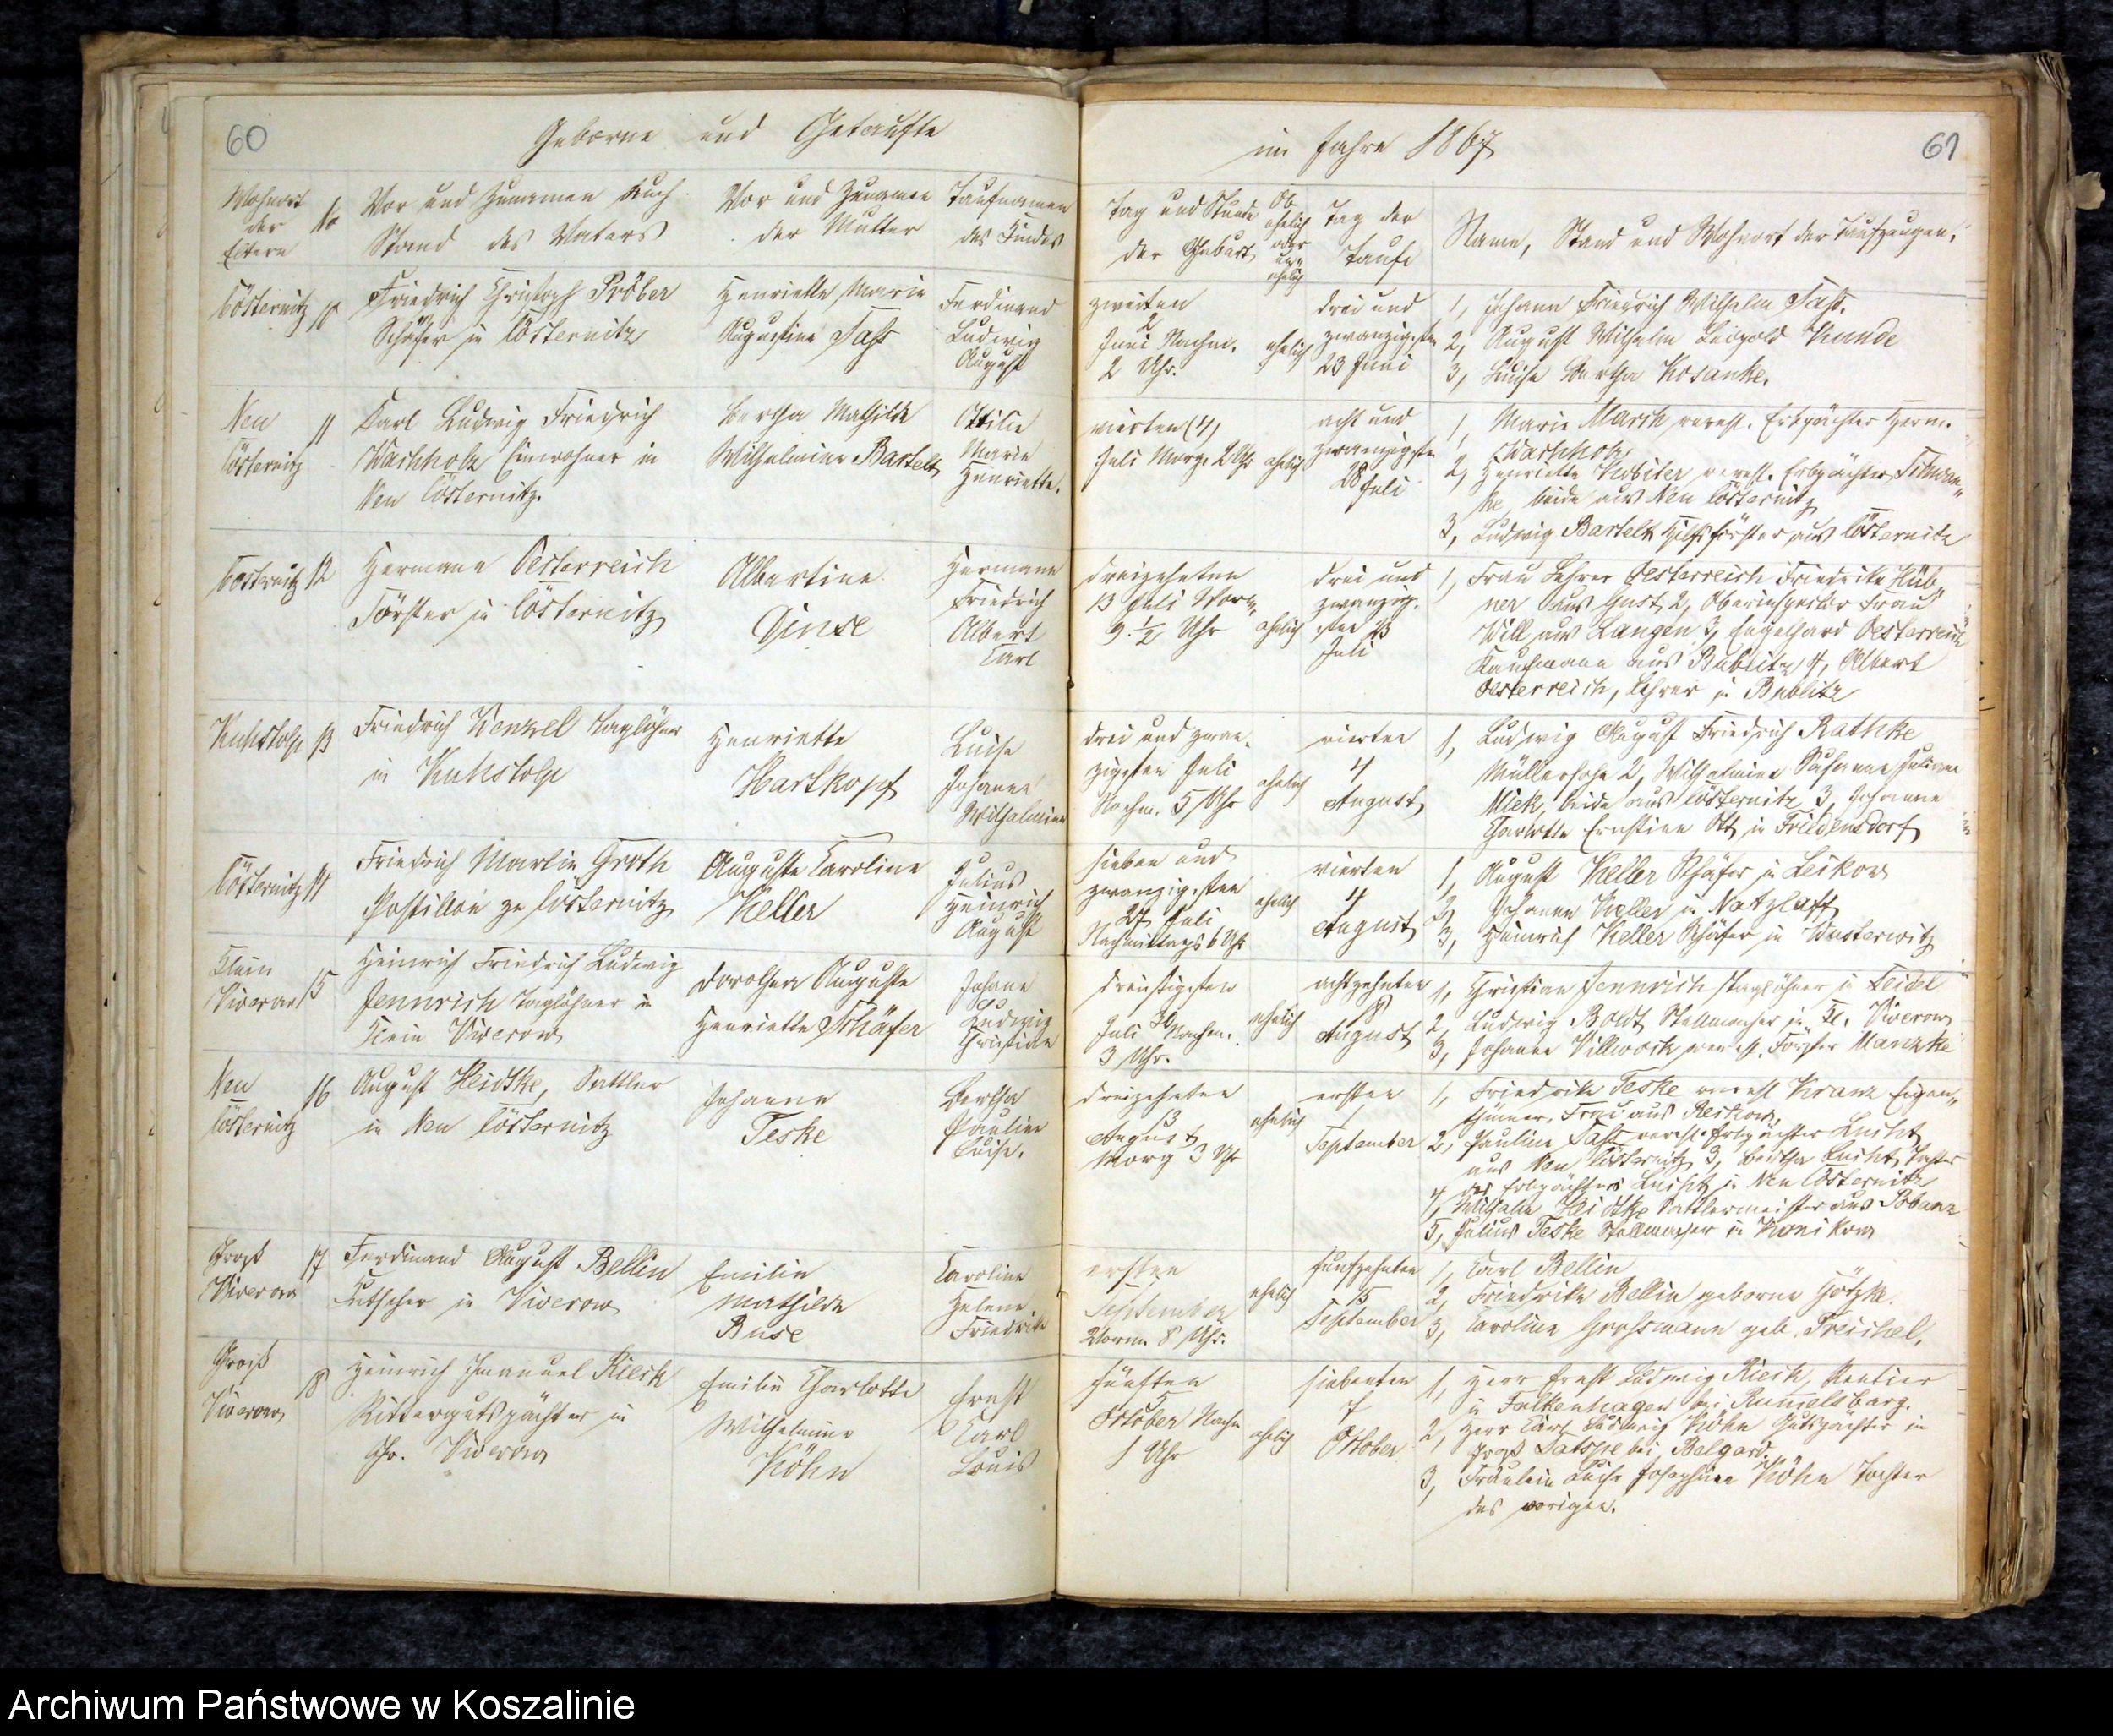 60
Geborne und Getaufte
Wohnort der Eltern
No
Vor und Zunamen auch
Stand des Vaters
Vor und Zunamen
der Mutter
Taufnamen
des Kindes
Cösternitz 10
Friedrich Christoph Pröber
Schäfer in Cösternitz
Henriette Marie
Augustine Tass
Ferdinand
Ludwig
August
Neu
Cösternitz
11
Karl Ludwig Friedrich
Wachholz Einwohner in
Neu Cösternitz.
Bertha Mathilde
Wilhelmine Bartelt
Ottilie
Marie
Henriette.
Cösternitz 12
Hermann Oesterreich
Förster in Cösternitz
Albertine
Ginse
Hermann
Friedrich
Albert
Carl
Kuhstolp 13
Friedrich Wenzel Taglöhner
in Kuhstolp
Henriette
Hartkopf
Luise
Johanne
Wilhelmine
Cösternitz 14
Friedrich Martin Groth
Postillon zu Cösternitz
Auguste Caroline
Keller
Julius
Heinrich
August
Klein
Viverow 15
Heinrich Friedrich Ludwig
Jennrich Taglöhner in
Klein Viverow
Dorothea Auguste
Henriette Schäfer
Johann
Ludwig
Christian
Neu
Cösternitz
16
August Heidtke, Sattler
in Neu Cösternitz
Johanne
Teske
Bertha
Pauline
Luise.
Groß
Viverow
17
Ferdinand August Bellin
Kutscher in Viverow
Emilie
Mathilde
Buse
Caroline
Helene
Friedrike
Groß
Viverow
18
Heinrich Imanuel Rieck
Rittergutspächter in
Gr. Viverow
Emilie Charlotte
Wilhelmine
Köhn
Ernst
Carl
Louis
im Jahre 1867
61
Tag und Stunde
der Geburt
Ob
ehelich
oder
une
ehelich
Tag der
Taufe
Name, Stand und Wohnort der Taufzeugen.
zweiten
2
Juni Nachm.
2 Uhr.
ehelich
drei und
zwanzigsten
23 Juni
1, Johann Friedrich Wilhelm Tass.
2, August Wilhelm Leopold Kunde
3, Luise Bertha Kosanke.
vierten (4)
Juli Morg. 2 Uhr
ehelich
acht und
zwanzigsten
28 Juli
1, Marie Marsch, verehl. Erbpächter Herm.
Wachholz
2, Henriette verehl. Erbpächter
ke, beide aus Neu Cösternitz
3, Ludwig Bartelt Hilfsförster aus Cösternitz
dreizehnten
13 Juli Vorm.
9 ½ Uhr
ehelich
drei und
Juli
1, Frau Lehrer Oesterreich Friedrike Hüb
ner aus Gust 2, Oberinspector Frau
Will aus Langen 3, Engelhard Oesterreich
Kaufmann aus Bublitz 4, Albert
Oesterreich, Lehrer in Bublitz
drei und zwan-
zigsten Juli
Nachm. 5 Uhr
ehelich
vierten
4
August
1, Ludwig August Friedrich Rathke
Müllersohn 2, Wilhelmine Susanne Juliane
Miek, beide aus Cösternitz 3, Johanne
Charlotte Ernstine Ott in Friedensdorf
sieben und
zwanzigsten
27 Juli
Nachmittags 6 Uhr
ehelich
vierten
4
August
1, August Keller Schäfer in Leikow
2, Johann Keller in Natzlaff
3, Heinrich Keller Schäfer in Wusterwitz
dreißigsten
Juli 30 Nachm.
3 Uhr.
ehelich
achtzehnten
18
August
1, Christian Jennrich Taglöhner in Seidel
2, Ludwig Boldt Stellmacher in Kl. Viverow
3, Johanne Villwock verehl. Förster Manzke
dreizehnten
13
August
Morg 3 Uhr
ehelich
ersten
1
September
1, Friedrike Teske verehl Kranz Eigen-
thümer, Frau aus Reckow,
2, Pauline Tass verehl. Erbpächter Lucht
aus Neu Cösternitz 3, Bertha Lucht, Tochter
des Erbpächters Lucht in Neu Cösternitz
4, Wilhelm Heidtke Sattlermeister aus Pobanz
5, Julius Teske Stellmacher in Konikow
ersten
1
September
Vorm. 8 Uhr.
ehelich
fünfzehnten
15
September
1, Carl Bellin
2, Friedrike Bellin geborne Götzke.
3, Caroline Grossmann geb. Treichel.
fünften
5
October Nachm
1 Uhr
ehelich
siebenten
7
October
1, Herr Ernst Ludwig Rieck, Rentier
in Falkenhagen bei Rumelsburg.
2, Herr Carl Ludwig Köhn Gutspächter in
Groß Satspe bei Belgard.
3, Fräulein Luise Josephine Köhn Tochter
des vorigen.
Archiwum Państwowe w Koszalinie